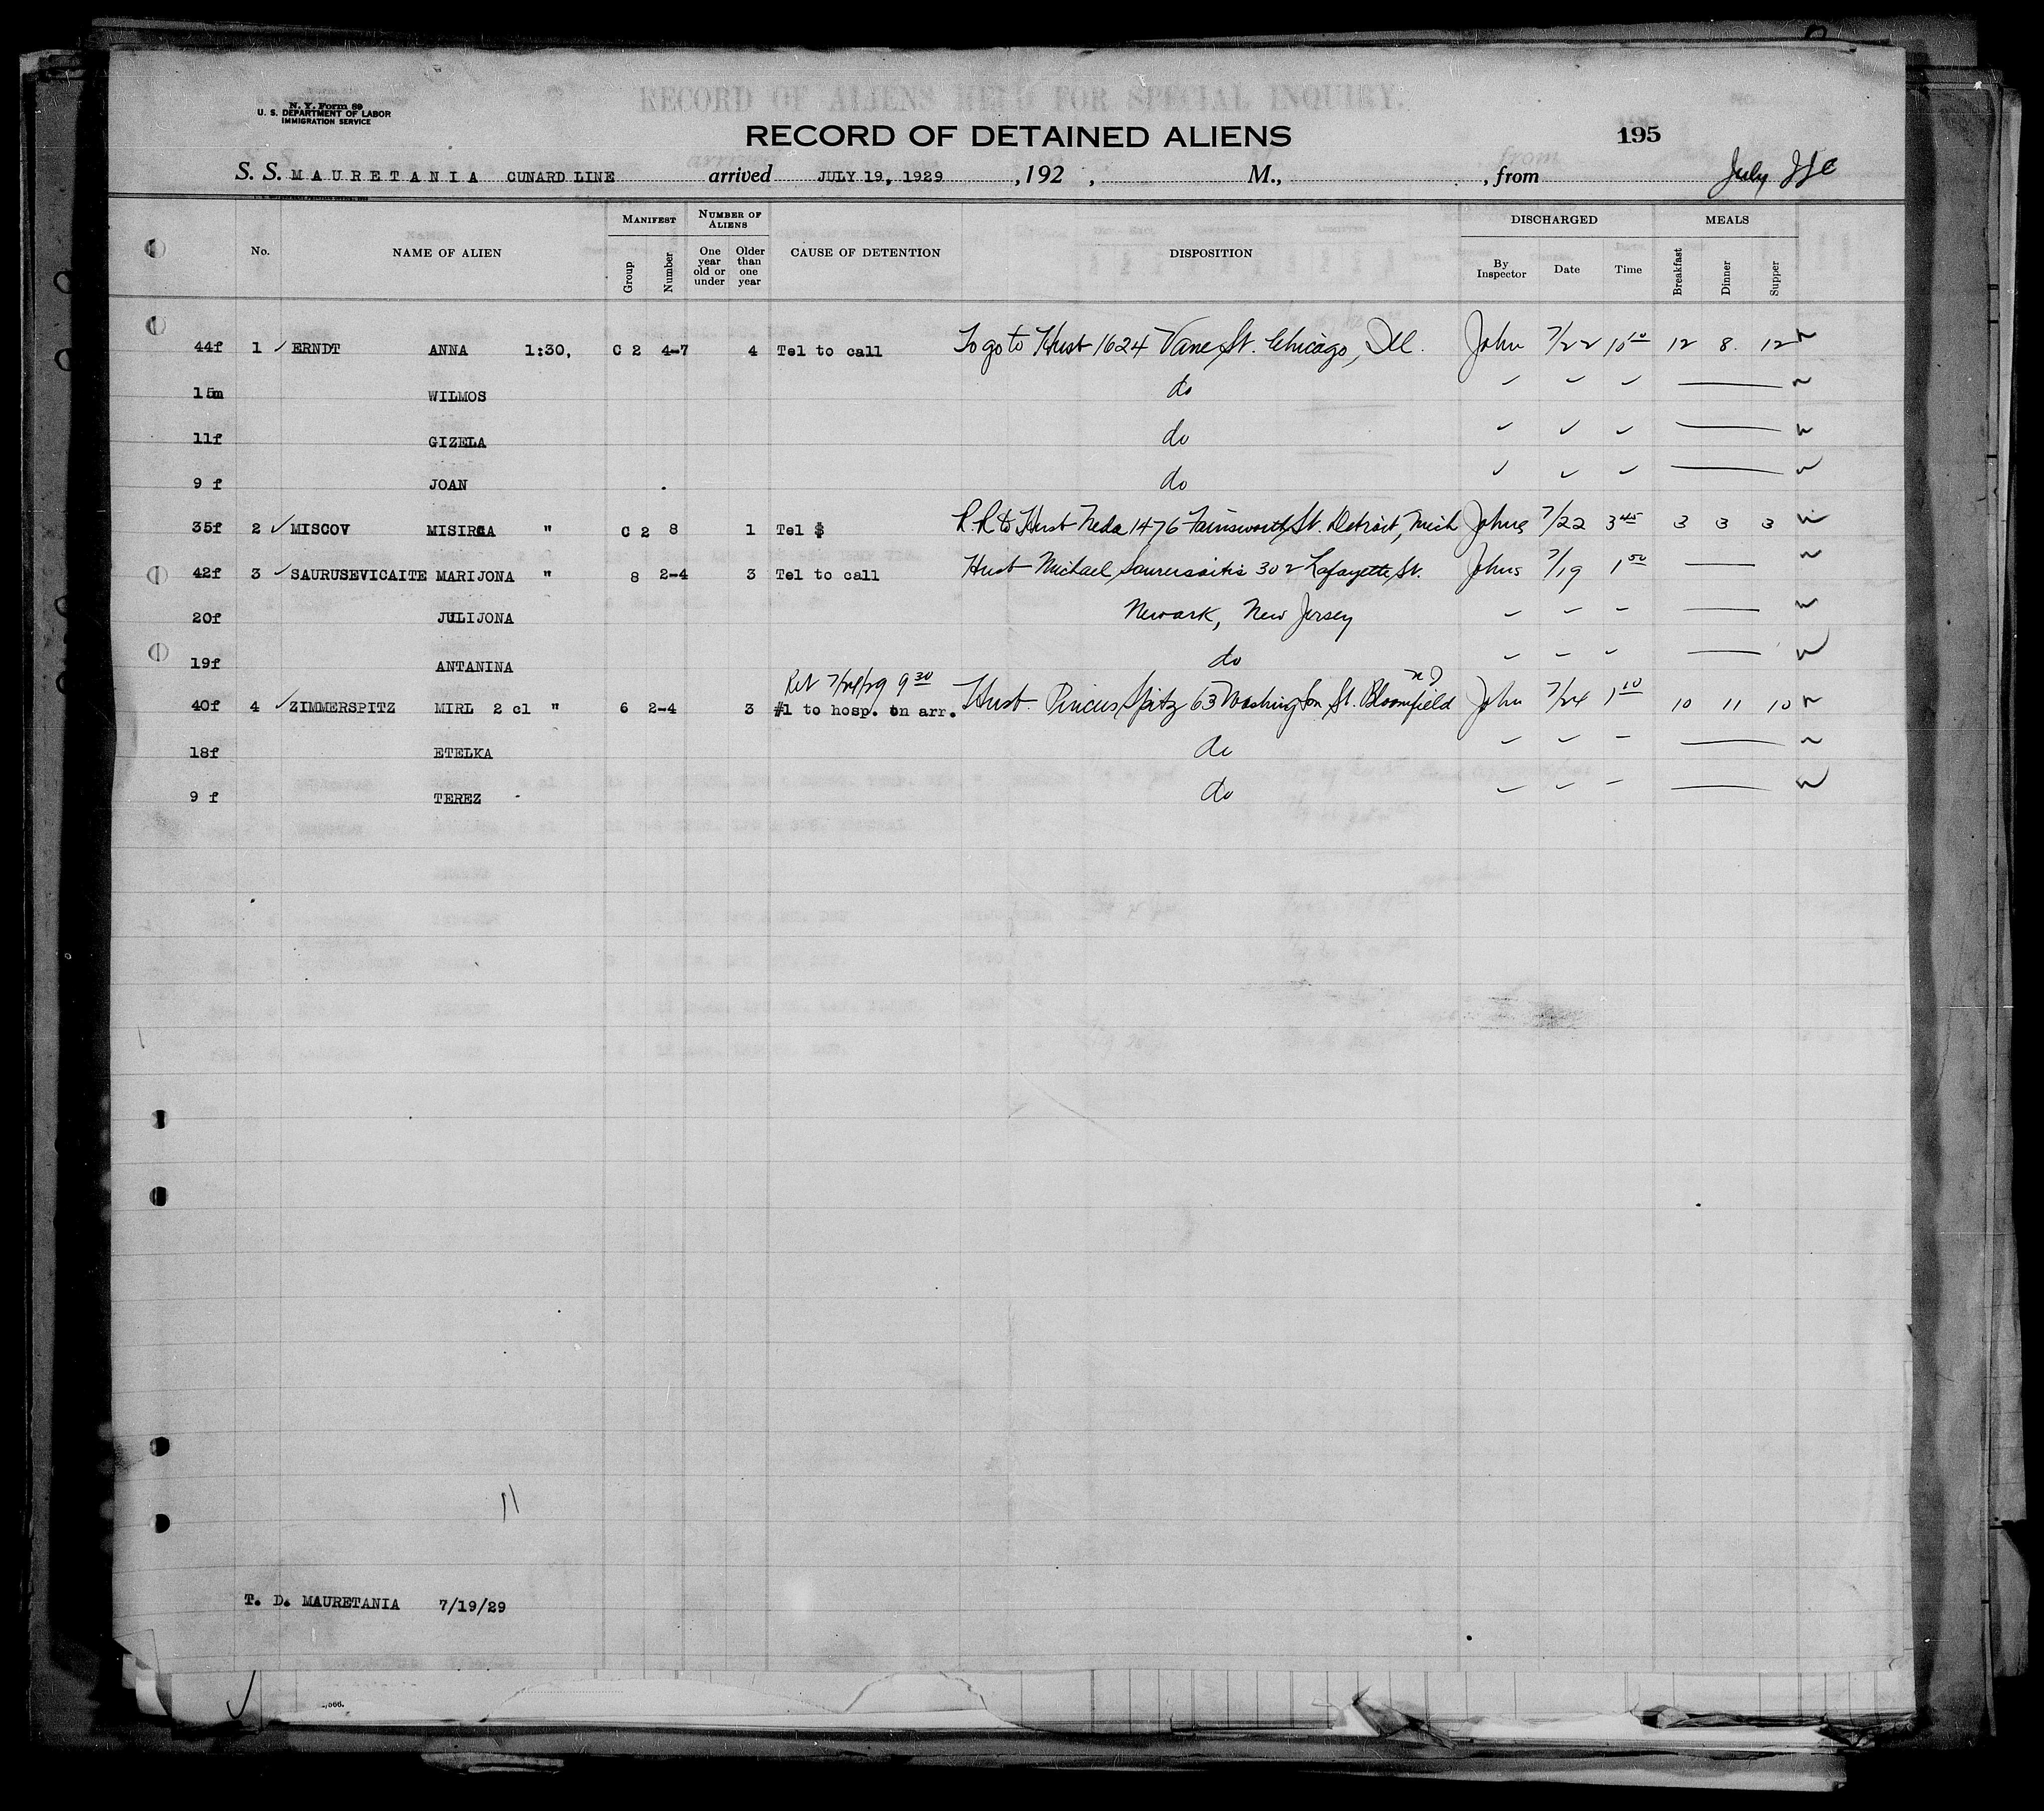 RECORD OF ALIENS HELD FOR SPECIAL INQUIRY.
N. Y. Form 89
U. S. DEPARTMENT OF LABOR
IMMIGRATION SERVICE
RECORD OF DETAINED ALIENS 195
S. S. MAURETANIA CUNARD LINE arrived JULY 19, 1929, 192 , M., , from July
No. NAME OF ALIEN MANIFEST Group Number NUMBER OF ALIENS One year old or under Older than one year CAUSE OF DETENTION DISPOSITION DISCHARGED By Inspector Date Time MEALS Breakfast Dinner Supper
44f 1 ✓ ERNDT ANNA 1:30, C 2 4-7 4 Tel to call To go to Husb 1624 Vane St. Chicago, Ill. John 7/22 10 12 8 12
15m WILMOS do ✓ ✓ ✓
11f GIZELA do ✓ ✓ ✓
9 f JOAN do ✓ ✓ ✓
35f 2 ✓ MISCOV MISIRCA " C 2 8 1 Tel $ R.R to Husb Neda 1476 Fainsworth St. Detroit, Mich Johns 7/22 3 45 3 3 3
42f 3 ✓ SAURUSEVICAITE MARIJONA " 8 2-4 3 Tel to call Husb Michael Saurusaitis 302 Lafayette St. Johns 7/19 1 50
20f JULIJONA Newark, New Jersey
19f ANTANINA do
Ret 7/24/29 9 30 NJ
40f 4 ✓ ZIMMERSPITZ MIRL 2 cl " 6 2-4 3 #1 to hosp. on arr. Husb. Pincus Spitz 63 Washington St. Bloomfield John 7/24 1 10 10 11 10
18f ETELKA do
9 f TEREZ do
11
T. D. MAURETANIA 7/19/29